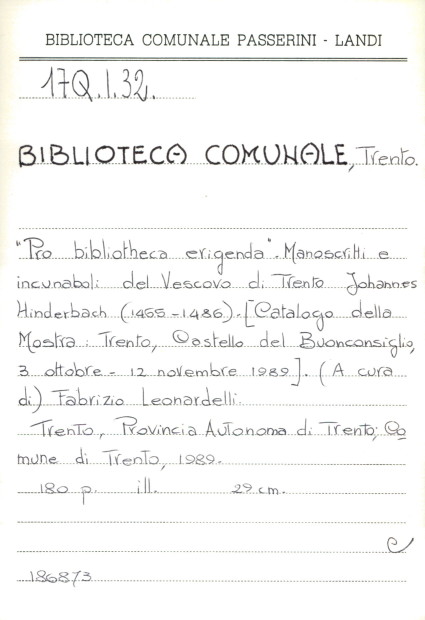 BIBLIOTECA COMUNALE PASSERINI - LANDI
17Q.I.32.
BIBLIOTECA COMUNALE, Trento.
"Pro bibliotheca erigenda". Manoscritti e
incunaboli del Vescovo di Trento Johannes
Hinderbach (1465-1486).-[Catalogo della
Mostra: Trento, Castello del Buonconsiglio,
3 ottobre - 12 novembre 1989]. (A cura
di) Fabrizio Leonardelli.
Trento, Provincia Autonoma di Trento; Co
mune di Trento, 1989.
180 p. ill. 29 cm.
C
186873